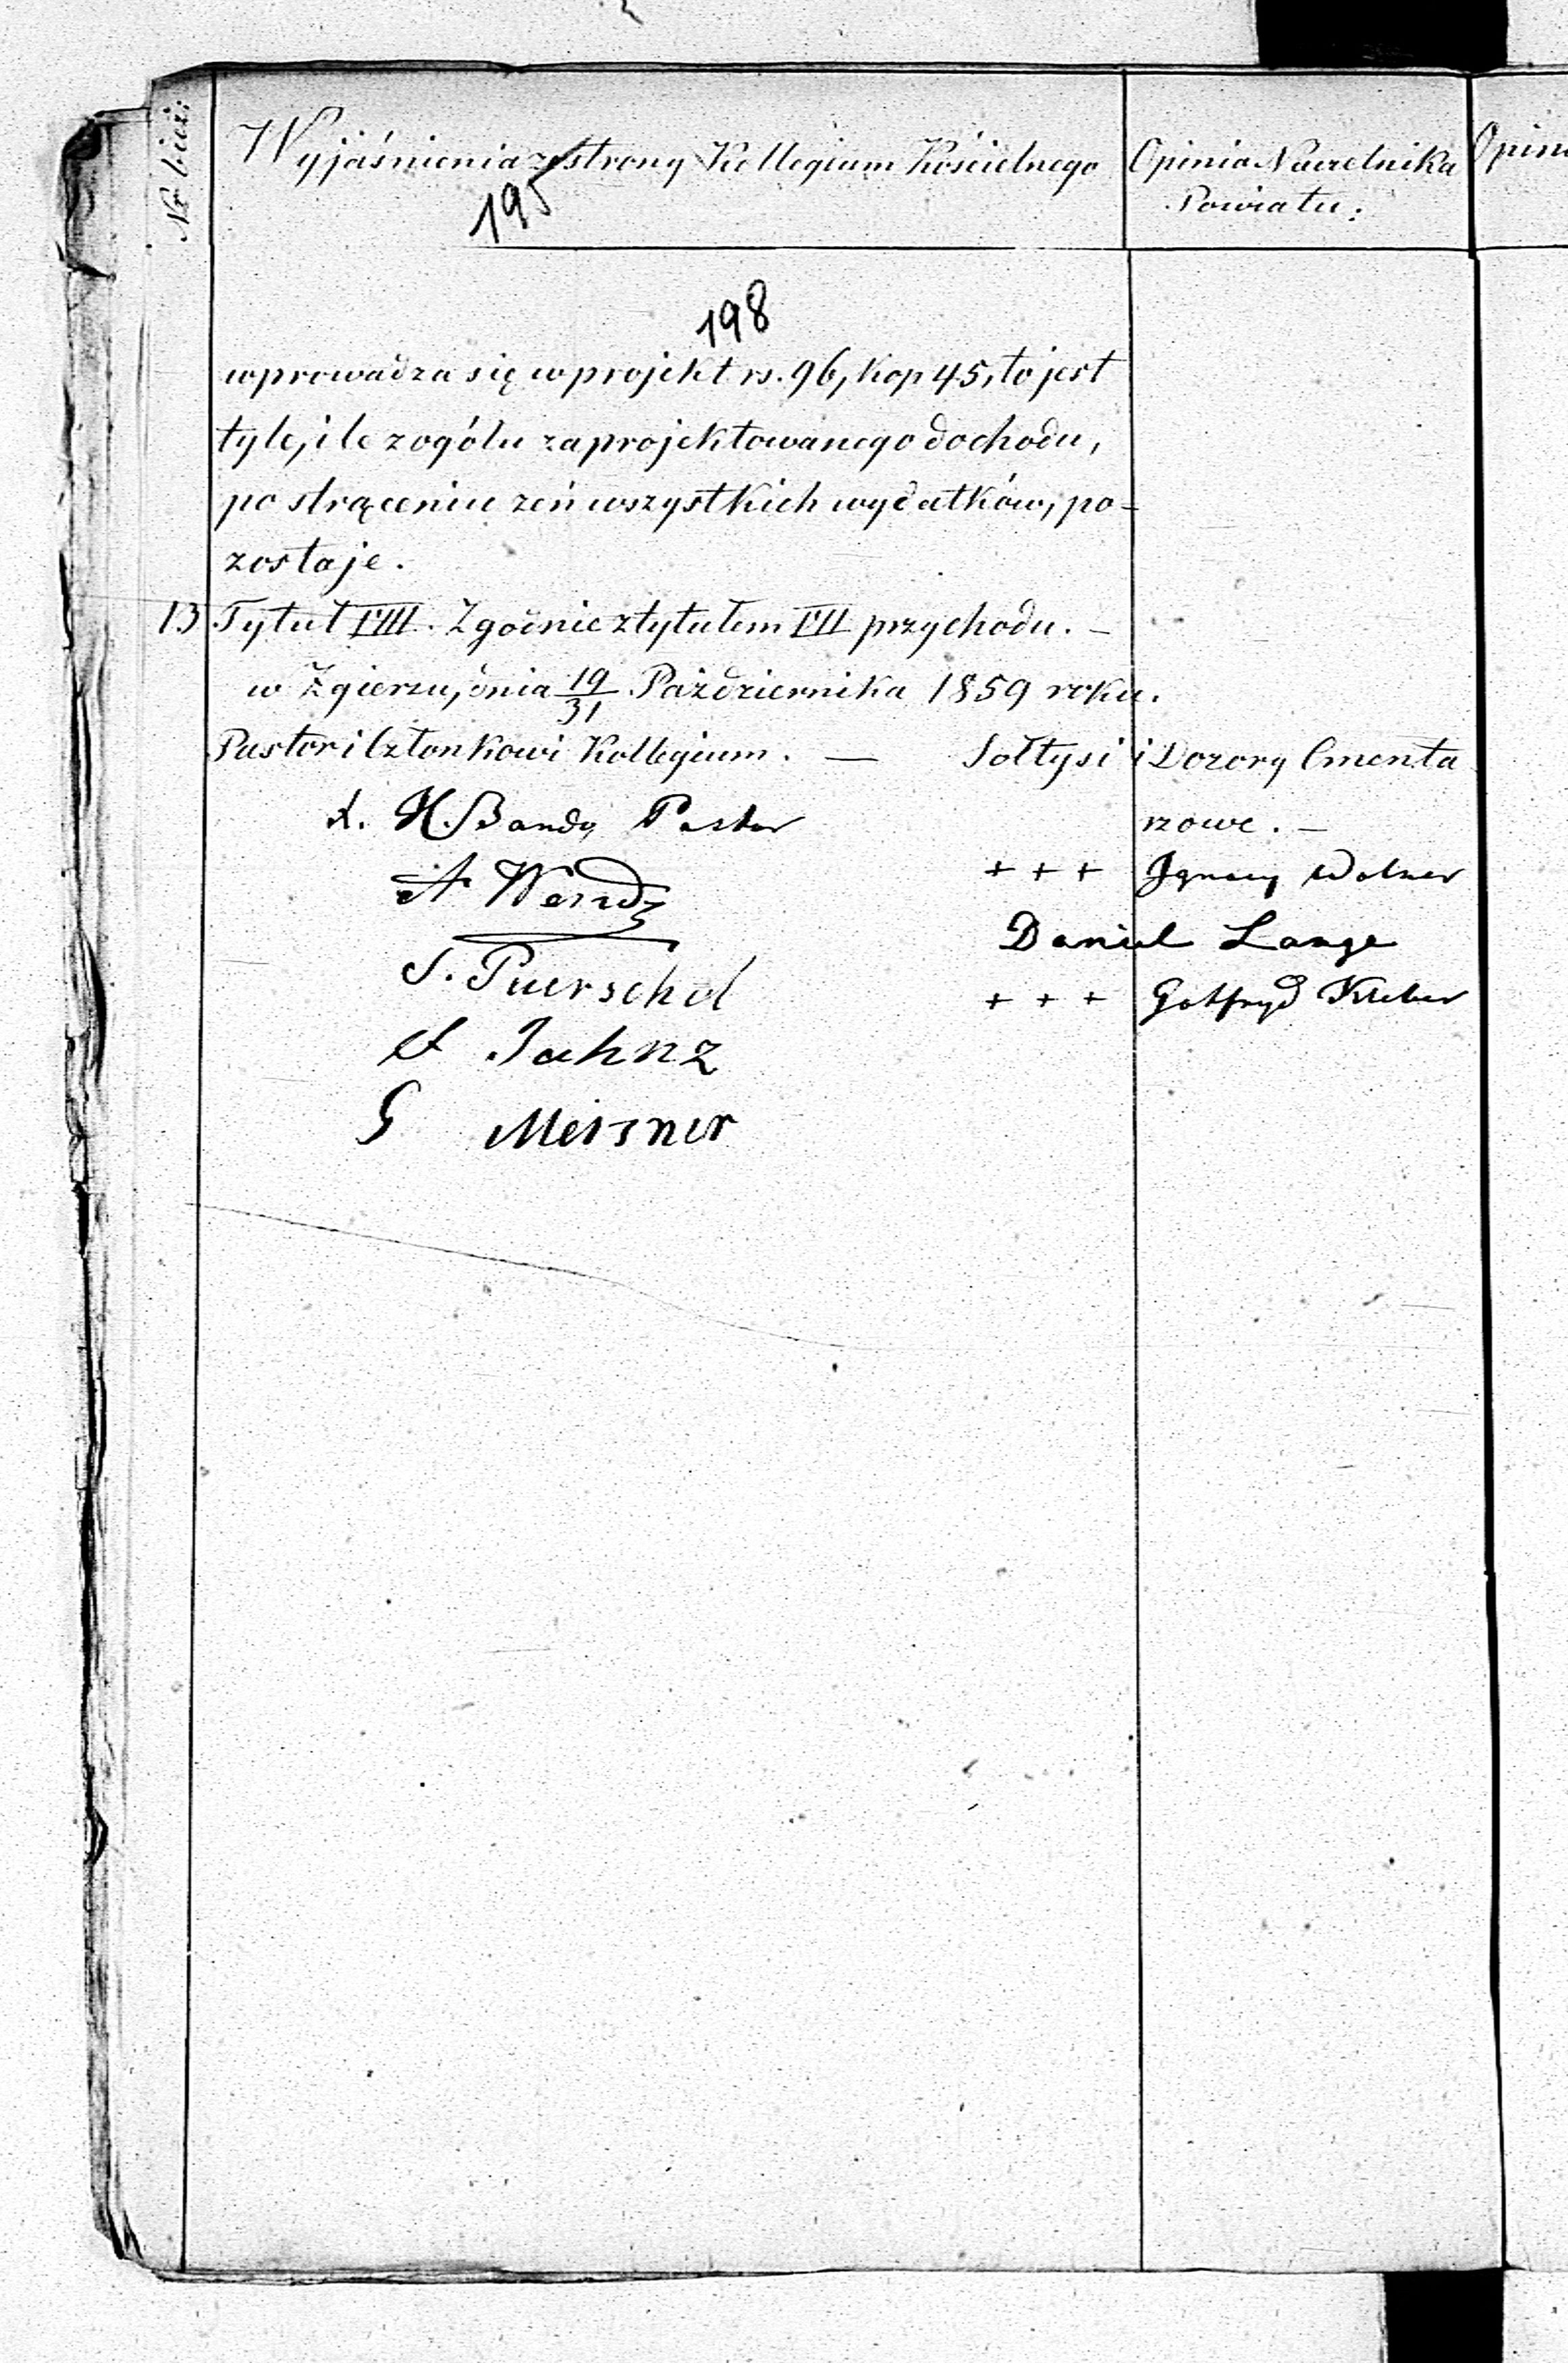 Nr bież:
Wyjaśnienia ze strony Kollegium Kościelnego
Opinia Naczelnika
Powiatu:
Opini
195
198
wprowadza się w projekt rs. 96, kop 45, to jest
tyle, ile z ogółu zaprojektowanego dochodu,
po strąceniu zeń wszystkich wydatków, po-
zostaje.
13 Tytuł VIII. Zgodnie z tytułem VII przychodu. –
w Zgierzu, dnia 19/31 Października 1859 roku.
Pastor i Członkowi Kollegium. —
Sołtysi i Dozory Cmenta
rzowe. –
X. H. Bando Pastor
A Wendz
S. Puerschel
S Jahnz
G Meisner
+ + + Ignacy Wolner
Daniel Lange
+ + + Gotfryd Kleber